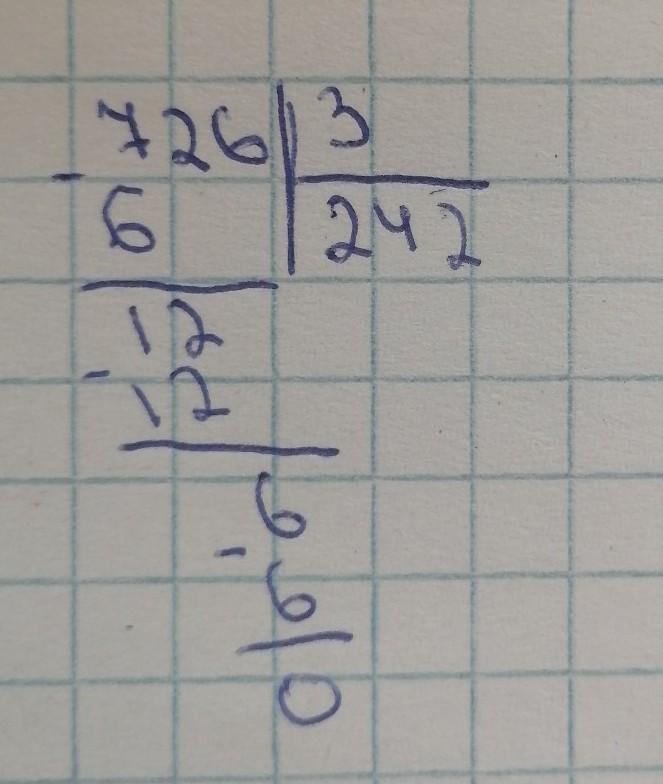 726 3
- 6 242
12
- 12
6
- 6
0